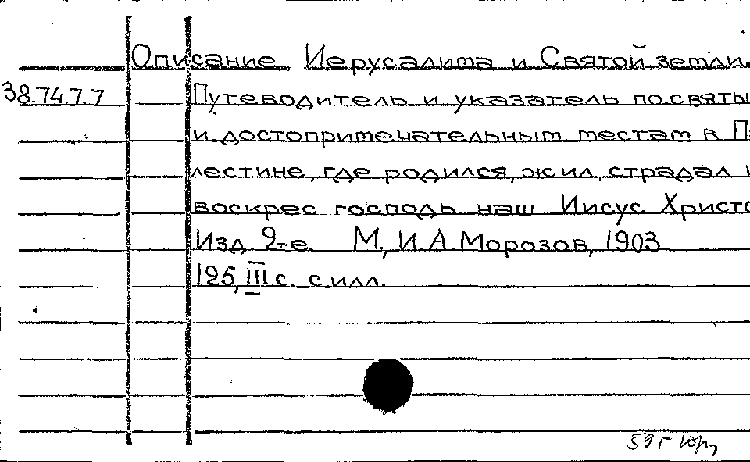 Описание Иерусалима и Святой земли.
38.74.7.7 Путеводитель и указатель по святы
и достопримечательным местам в Па
лестине, где родился, жил, страдал и
воскрес господь наш Иисус Христо
Изд. 2-е. М., И.А. Морозов, 1903
125, III с. с илл.
59г